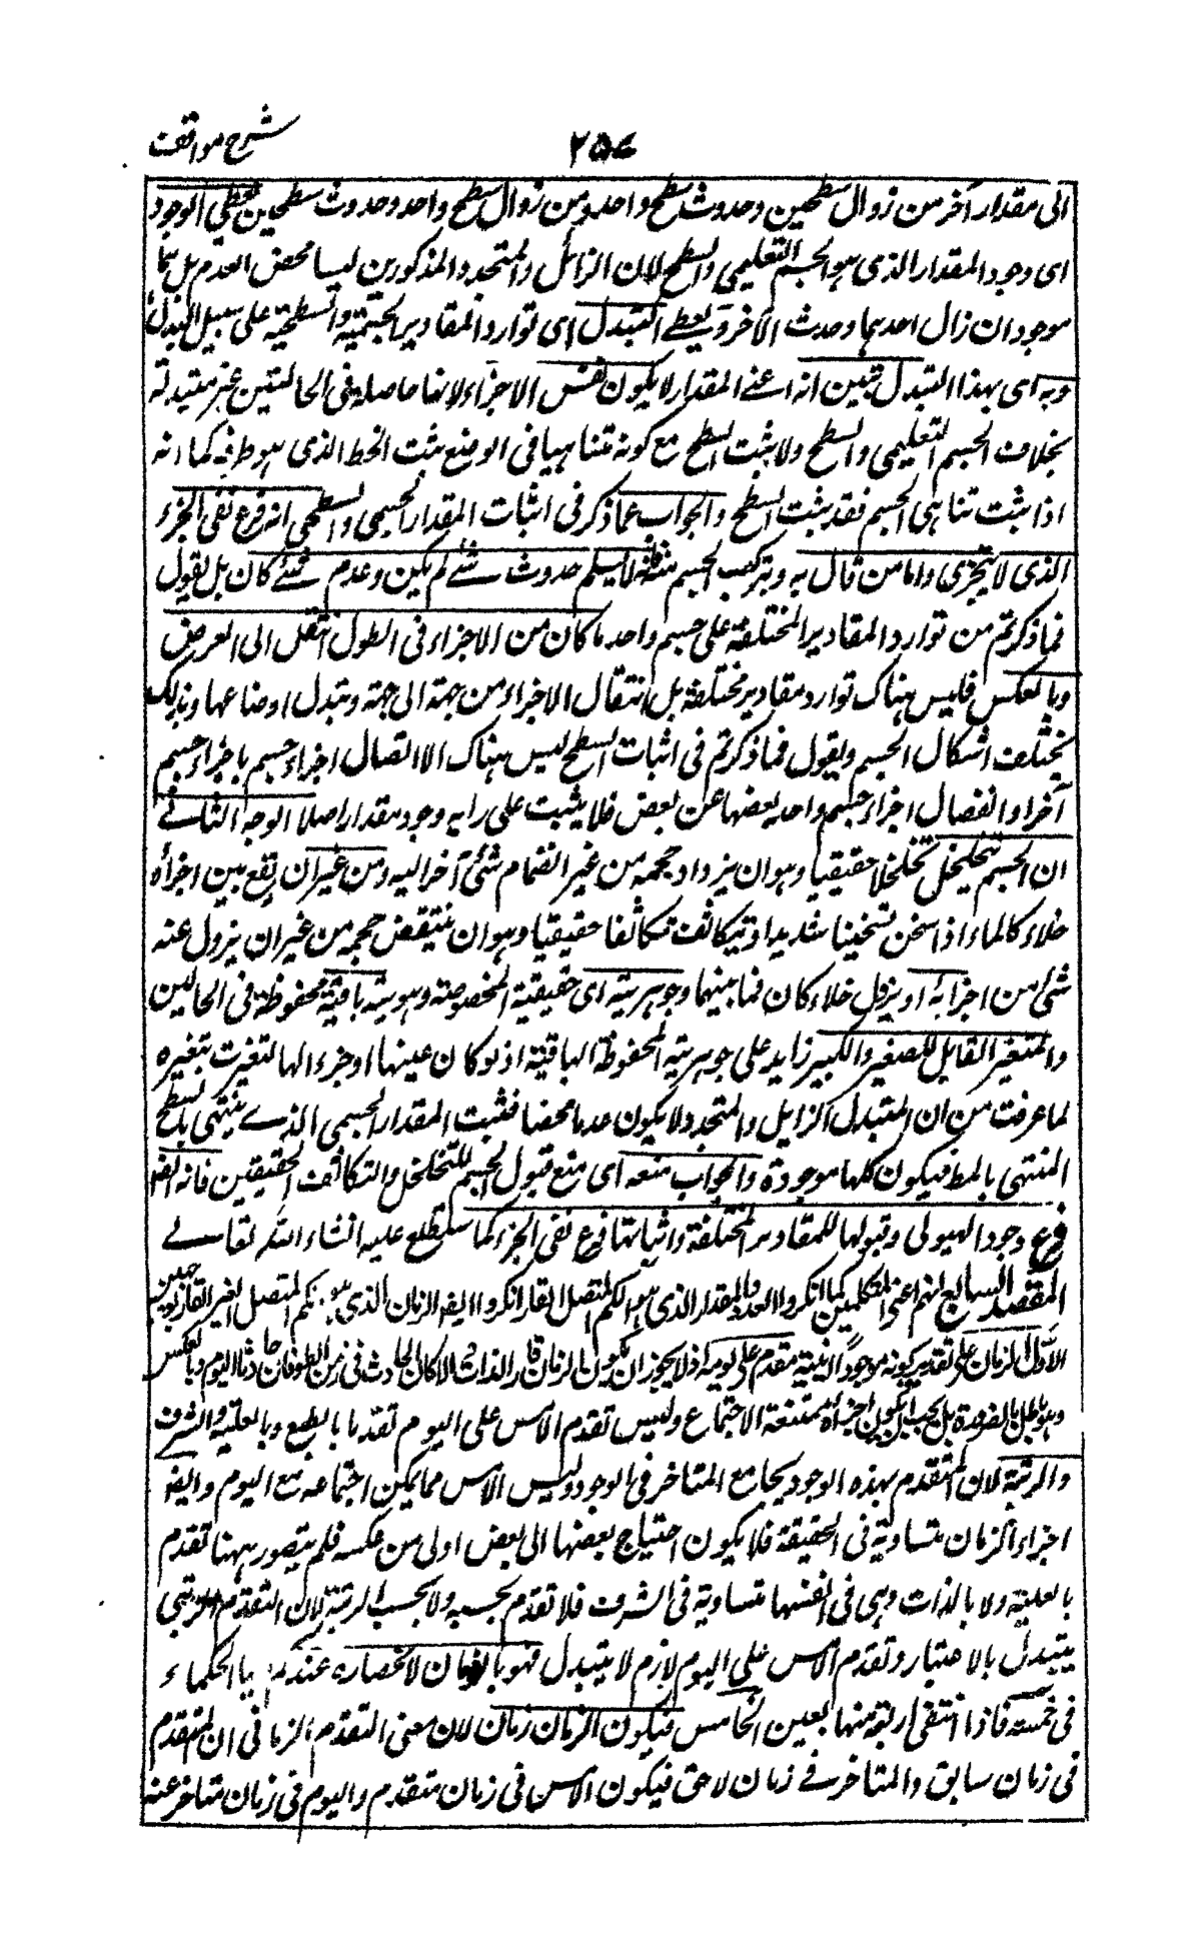 شرح مواقف
٢٥٧
الى مقدار آخر من زوال سطحين وحدوث سطح واحد ومن زوال سطح واحد وحدوث سطحين يعطى الوجود
اى وجود المقدار الذى هو الجسم التعليمى والسطح لان الزائل والمتجدد المذكورين ليسا محض العدم بل هما
موجودان زال احدهما وحدث الآخر ويعطى التبدل اى توارد المقادير الجسمية والسطحية على سبيل البدل
وبه اى بهذا التبدل تبين انه اعنى المقدار لا يكون نفس الاجزاء لانها حاصلة فى الحالتين غير متبدلة
بخلاف الجسم التعليمى والسطح ولا يثبت السطح مع كونه متناهيا فى الوضع يثبت الخط الذى هو طرفه كما انه
اذا ثبت تناهى الجسم فقد يثبت السطح والجواب عما ذكر فى اثبات المقدار الجسمى والسطحى انه فرع نفى الجزء
الذى لا يتجزى واما من قال به وبتركب الجسم منه فانه لا يسلم حدوث شئ لم يكن وعدم شئ كان بل يقول
فما ذكرتم من توارد المقادير المختلفة على جسم واحد ما كان من الاجزاء فى الطول انتقل الى العرض
وبالعكس فليس هناك توارد مقادير مختلفة بل انتقال الاجزاء من جهة الى جهة وتبدل اوضاعها وبذلك
يختلف اشكال الجسم ويقول فما ذكرتم فى اثبات السطح ليس هناك الا اتصال اجزاء جسم باجزاء جسم
آخر او انفصال اجزاء جسم واحد بعضها عن بعض فلا يثبت على رايه وجود مقدار اصلا الوجه الثانى
ان الجسم يتخلخل تخلخلا حقيقيا وهو ان يزداد حجمه من غير انضمام شئ آخر اليه ومن غير ان يقع بين اجزائه
خلاء كالماء اذا سخن تسخينا شديدا وتيكاثف تكاثفا حقيقيا وهو ان ينتقض حجمه من غير ان يزول عنه
شئ من اجزائه او يزول خلاء كان فما بينهما وجوهريته اى حقيقية المخصوصة وهويته باقية محفوظة فى الحالين
والمتغير القابل للصغير والكبير زايد على جوهريته المحفوظة الباقية اذ لو كان عينها او جزء الها لتغيرت بتغيره
لما عرفت من ان المتبدل الزايل والمتجدد لا يكون عدما محضا فثبت المقدار الجسمى الذى ينتهى بالسطح
المنتهى بالخط فيكون كلها موجودة والجواب منعه اى منع قبول الجسم للتخلخل والتكاثف الحقيقين فانه ايضا
فرع وجود الهيولى وقبولها للمقادير المختلفة واثباتها فرع نفى الجزء كما ستطلع عليه انشاء الله تعالى
المقصد السابع انهم اعنى المتكلمين كما انكروا العدد والمقدار الذى هو الكم المتصل القار انكروا ايضا الزمان الذى هو الكم المتصل الغير القار لوجهين
الاول الزمان على تقدير كونه موجودا انيته مقدم على يومه اذ لا يجوز ان يكون الزمان قار الذات والا كان الحادث فى زمن الطوفان حادثا اليوم وبالعكس
وهو باطل بالضرورة بل يجب ان يكون اجزائه ممتنعة الاجتماع وليس تقدم الامس على اليوم تقدما بالطبع وبالعلية والشرف
والرتبة لان المتقدم بهذه الوجود يجامع المتاخر فى الوجود وليس الامس مما يمكن اجتماعه مع اليوم وايضا
اجزاء الزمان متساوية فى الحقيقة فلا يكون احتياج بعضها الى بعض اولى من عكسه فلم يتصور ههنا تقدم
بالعلية ولا بالذات وهى فى انفسها متساوية فى الشرف فلا تقدم بحسبه ولا بحسب الرتبة لان التقدم الرتبى
يتبدل بالاعتبار وتقدم الامس على اليوم لازم لا يتبدل فهو بالزمان لانحصاره عندكم ايها الحكماء
فى خمسة فاذا انتفى اربعة منها بعين الخامس فيكون الزمان زمان لان معنى التقدم الزمانى ان المتقدم
فى زمان سابق والمتاخر فى زمان لاحق فيكون الامس فى زمان متقدم واليوم فى زمان متاخر عنه